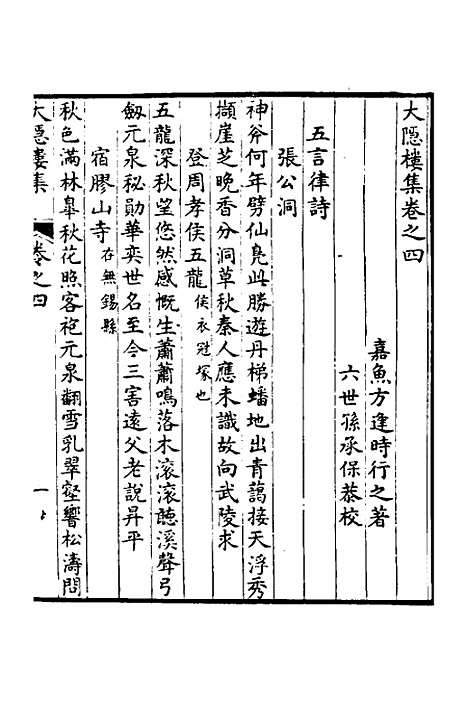 大隱樓集卷之四
嘉魚方逢時行之著
六世孫承保恭校
五言律詩
張公洞
神斧何年劈仙鳧此勝遊丹梯蟠地出青藹接天浮秀
擷崖芝晚香分洞草秋秦人應未識故向武陵求
登周孝侯五龍侯衣冠塚也
五龍深秋望悠然感慨生蕭蕭鳴落木滚滚聽溪聲弓
劔元泉秘勛華奕世名至今三害遠父老說昇平
宿膠山寺在無錫縣
秋色滿林臯秋花照客袍元泉翻雪乳翠壑響松濤問
大隱樓集
卷之四
一